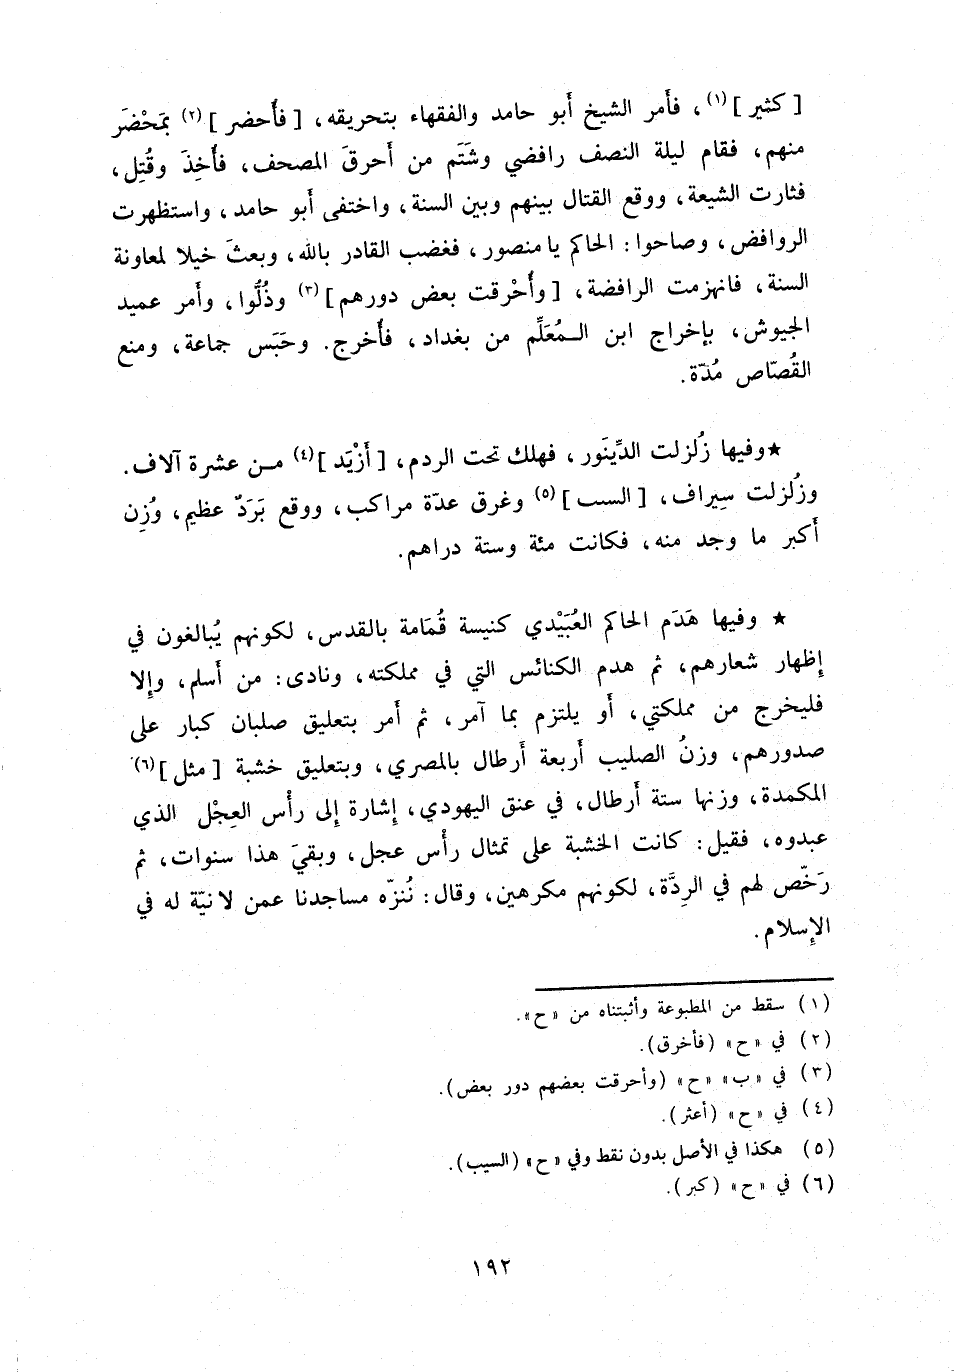 [ كثير ] (١) ، فأَمر الشيخ أَبو حامد والفقهاء بتحريقه ، [ فأُحضر ] (٢) بمَحْضَر
منهم ، فقام ليلة النصف رافضي وشَتَم من أَحرقَ المصحف ، فأُخِذَ وقُتِل ،
فثارت الشيعة ، ووقع القتال بينهم وبين السنة ، واختفى أَبو حامد ، واستظهرت
الروافض ، وصاحوا : الحاكم يا منصور ، فغضب القادر بالله ، وبعثَ خيلا لمعاونة
السنة ، فانهزمت الرافضة ، [ وأُحْرقت بعض دورهم ] (٣) وذُلُّوا ، وأَمر عميد
الجيوش ، بإخراج ابن الـمُعَلِّم من بغداد ، فأُخرج . وحَبَس جماعة ، ومنع
القُصّاص مُدّة .
★ وفيها زُلزلت الدِّينَور ، فهلك تحت الردم ، [ أَزْيَد ] (٤) مـن عشرة آلاف .
وزُلزلت سِيراف ، [ السىب ] (٥) وغرق عدّة مراكب ، ووقع بَرَدٌ عظيم ، وُزِن
أَكبر ما وجد منه ، فكانت مئة وستة دراهم .
★ وفيها هَدَم الحاكم العُبَيْدي كنيسة قُمَامة بالقدس ، لكونهم يُبالغون في
إِظهار شعارهم ، ثم هدم الكنائس التي في مملكته ، ونادى : من أَسلم ، وإِلا
فليخرج من مملكتي ، أَو يلتزم بما آمر ، ثم أَمر بتعليق صلبان كبار على
صدورهم ، وزنُ الصليب أَربعة أَرطال بالمصري ، وبتعليق خشبة [ مثل ] (٦)
المكمدة ، وزنها ستة أَرطال ، في عنق اليهودي ، إِشارة إِلى رأْس العِجْل الذي
عبدوه ، فقيل : كانت الخشبة على تمثال رأْس عجل ، وبقيَ هذا سنوات ، ثم
رَخّص لهم في الرِدَّة ، لكونهم مكرهين ، وقال : نُنزّه مساجدنا عمن لا نيّة له في
الإِسلام .
(١) سقط من المطبوعة وأثبتناه من « ح » .
(٢) في « ح » ( فأخرق ) .
(٣) في « ب » « ح » ( وأحرقت بعضهم دور بعض ) .
(٤) في « ح » ( أعثر ) .
(٥) هكذا في الأصل بدون نقط وفي « ح » ( السيب ) .
(٦) في « ح » ( كبر ) .
١٩٢